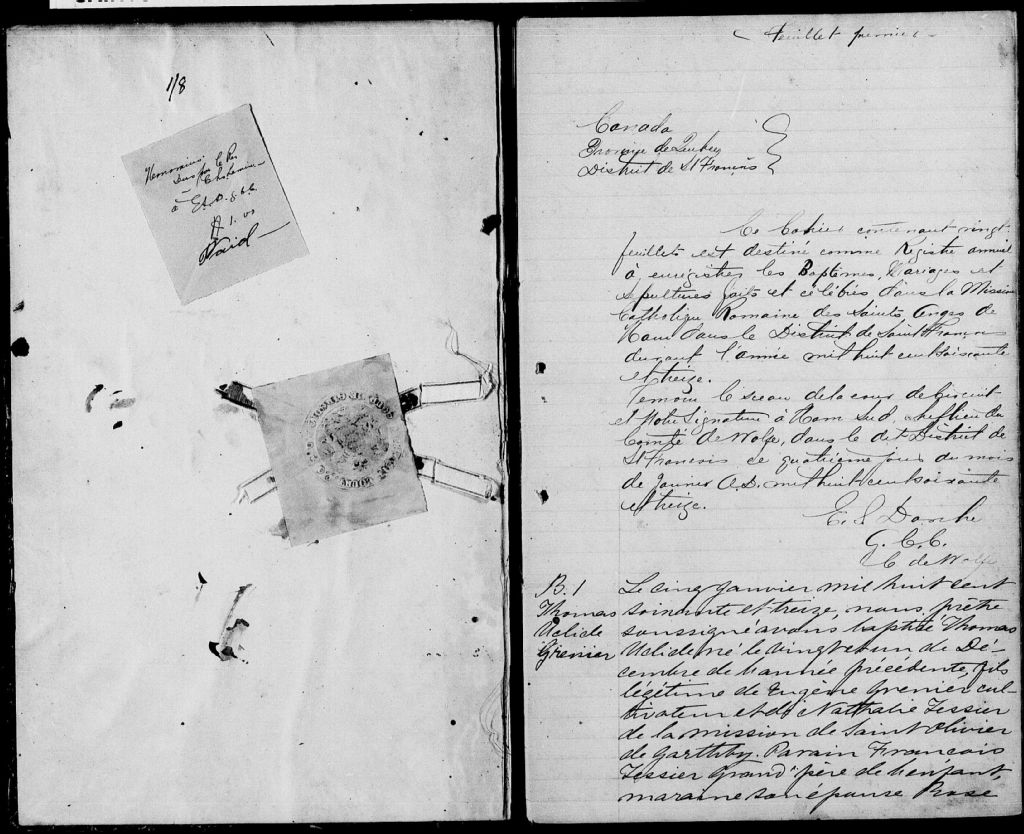 1/8
Honoraires
Dus par le Rév
à
$ 1.00
Paid
Feuillet premier
Canada
Province de Québec
District de St François
Ce Cahier contenant vingt
feuillets est destiné comme Registre annuel
à enregistrer les Baptêmes, Mariages et
Sépultures faits et célébrés dans la Mission
Catholique Romaine des Saints Anges de
Ham dans le District de Saint François
durant l'année mil huit cent soixante
et treize.
Temoin le sceau de la cour de Circuit
et Notre Signature à Ham Sud, chef lieu du
Comté de Wolfe, dans le dit District de
St Francois ce quatrième jour du mois
de Janvier A.D. mil huit cent soixante
et treize.
G. C. C.
C de Wolfe
B. 1 Le cinq Janvier mil huit cent
Thomas soixante et treize, nous, prêtre
Uclide soussigné avons baptisé Thomas
Grenier Uclide né le vingt et un de Dé-
cembre de l'année précédente, fils
légitime de Eugène Grenier cul-
tivateur et de Nathalie Tessier
de la mission de Saint Olivier
de Garthby. Parain François
Tessier Grand père de l'enfant,
maraine son épouse Rose